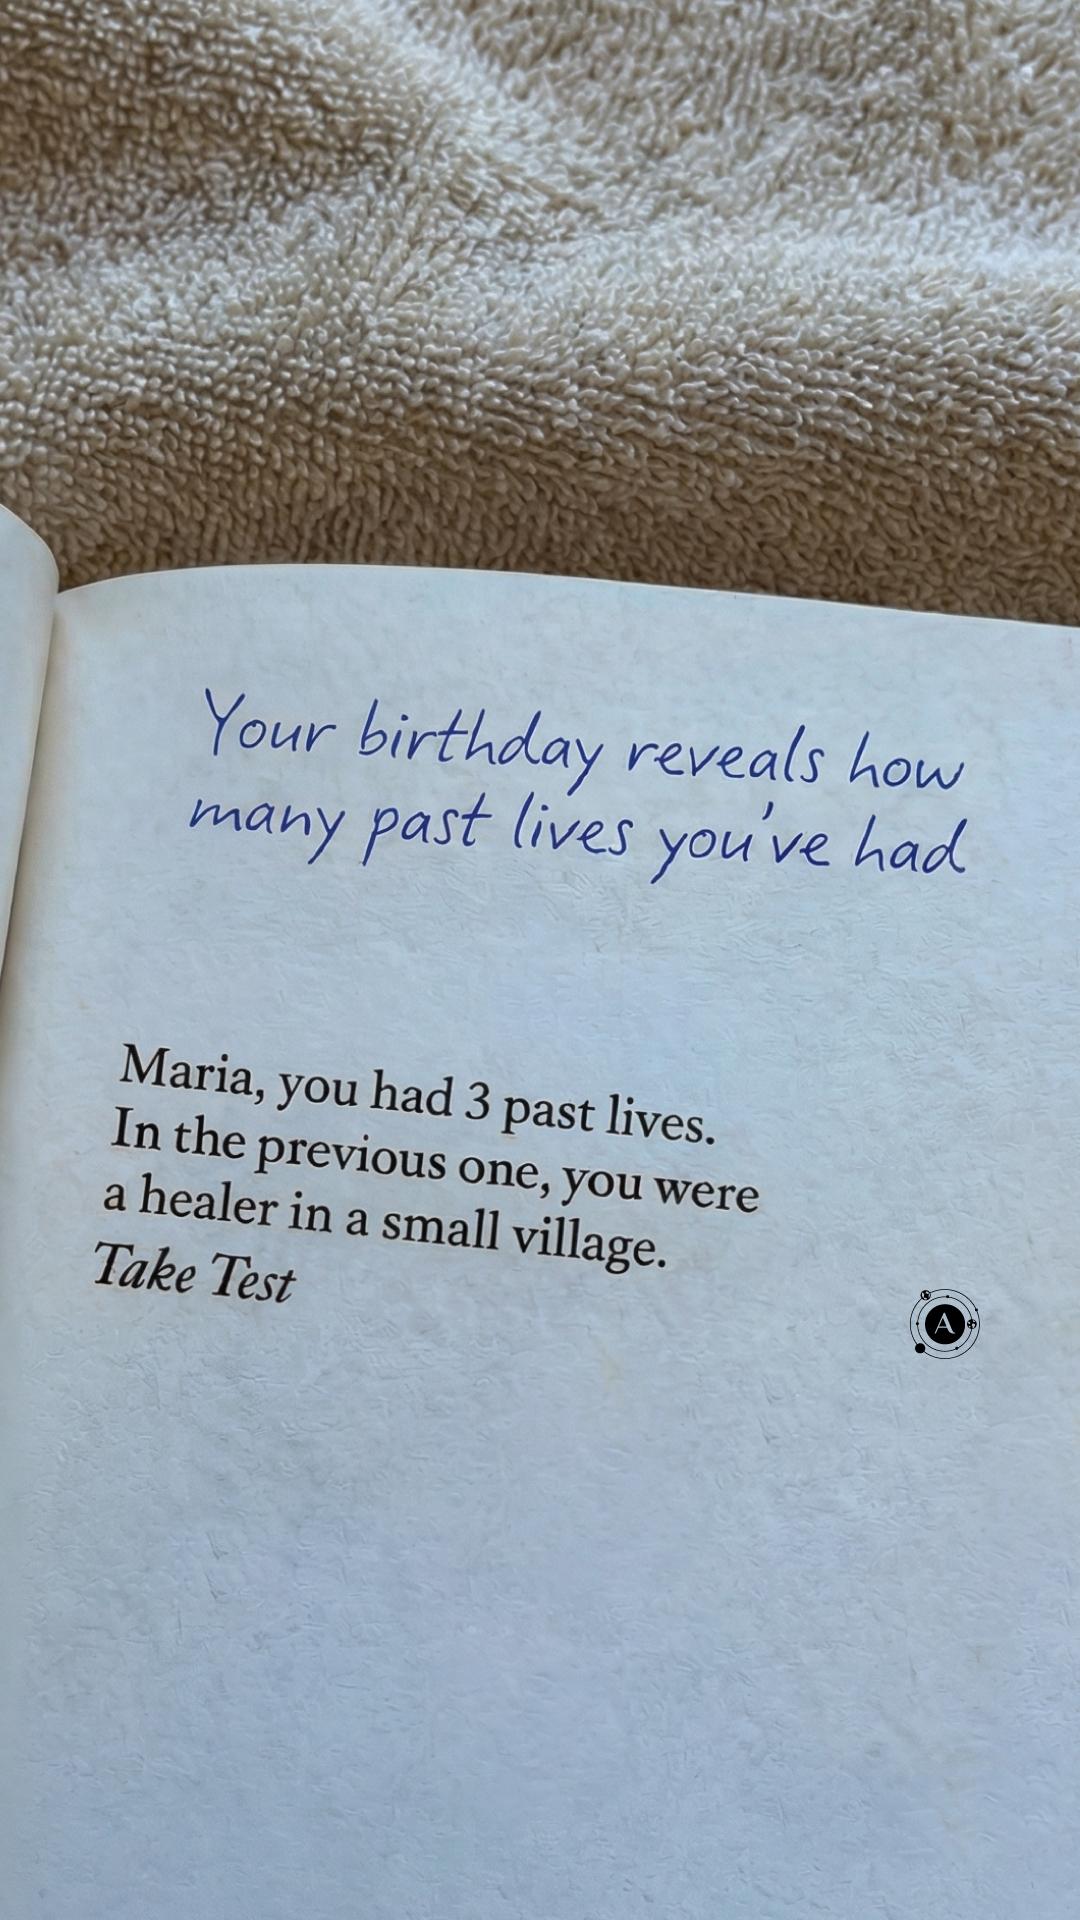 Your birthday reveals how
many past lives you've had
Maria, you had 3 past lives.
In the previous one, you were
a healer in a small village.
Take Test
A